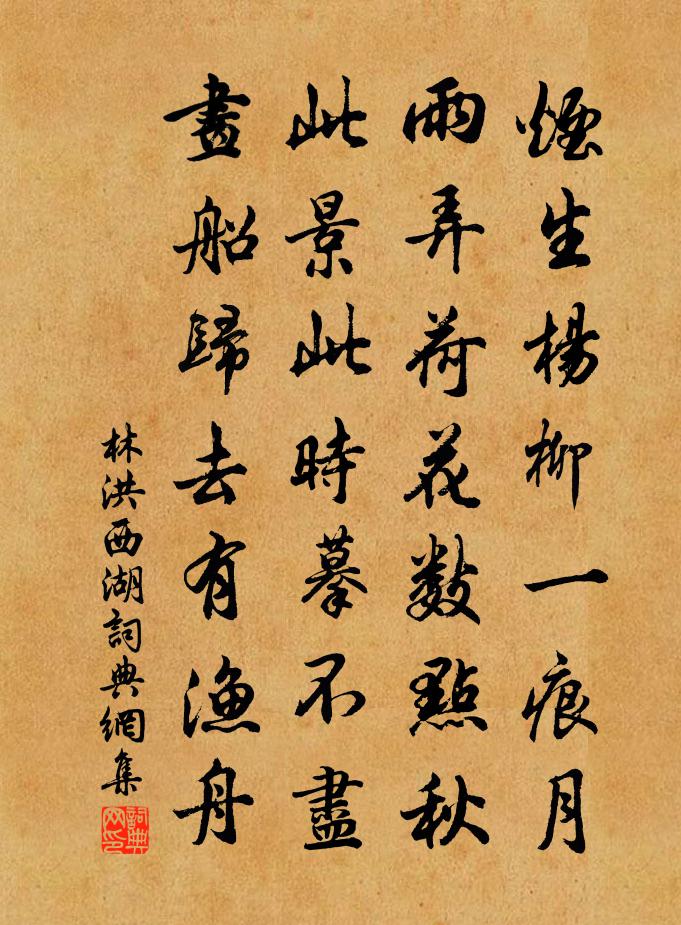 煙生楊柳一痕月
雨弄荷花数點秋
此景此時摹不盡
畫船歸去有漁舟
林洪西湖詞典網集
詞典网印